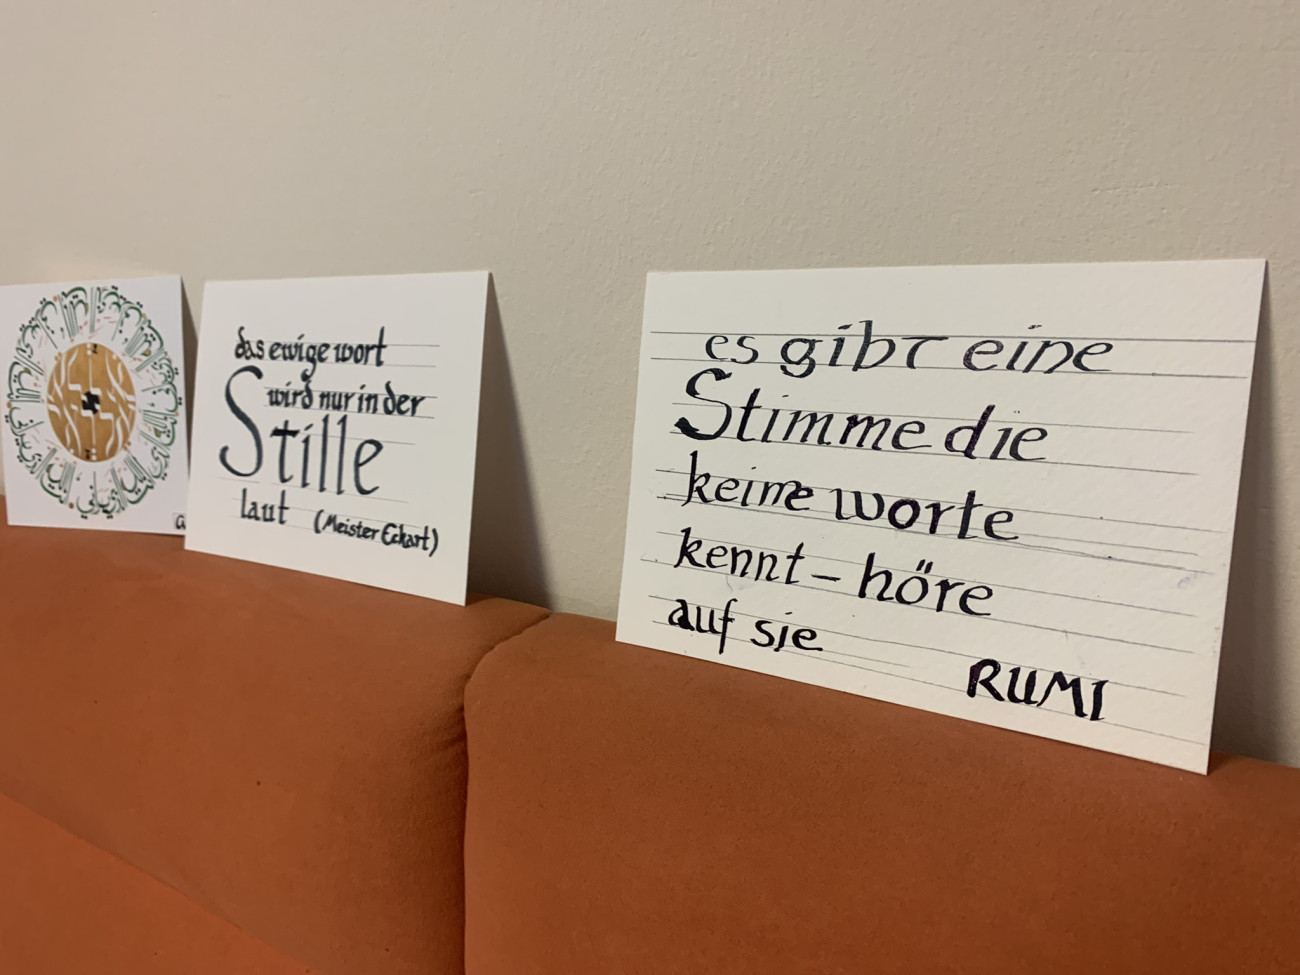 das ewige wort
wird nur in der
Stille
laut (Meister Eckart)
es gibt eine
Stimme die
keine worte
kennt – höre
auf sie
RUMI